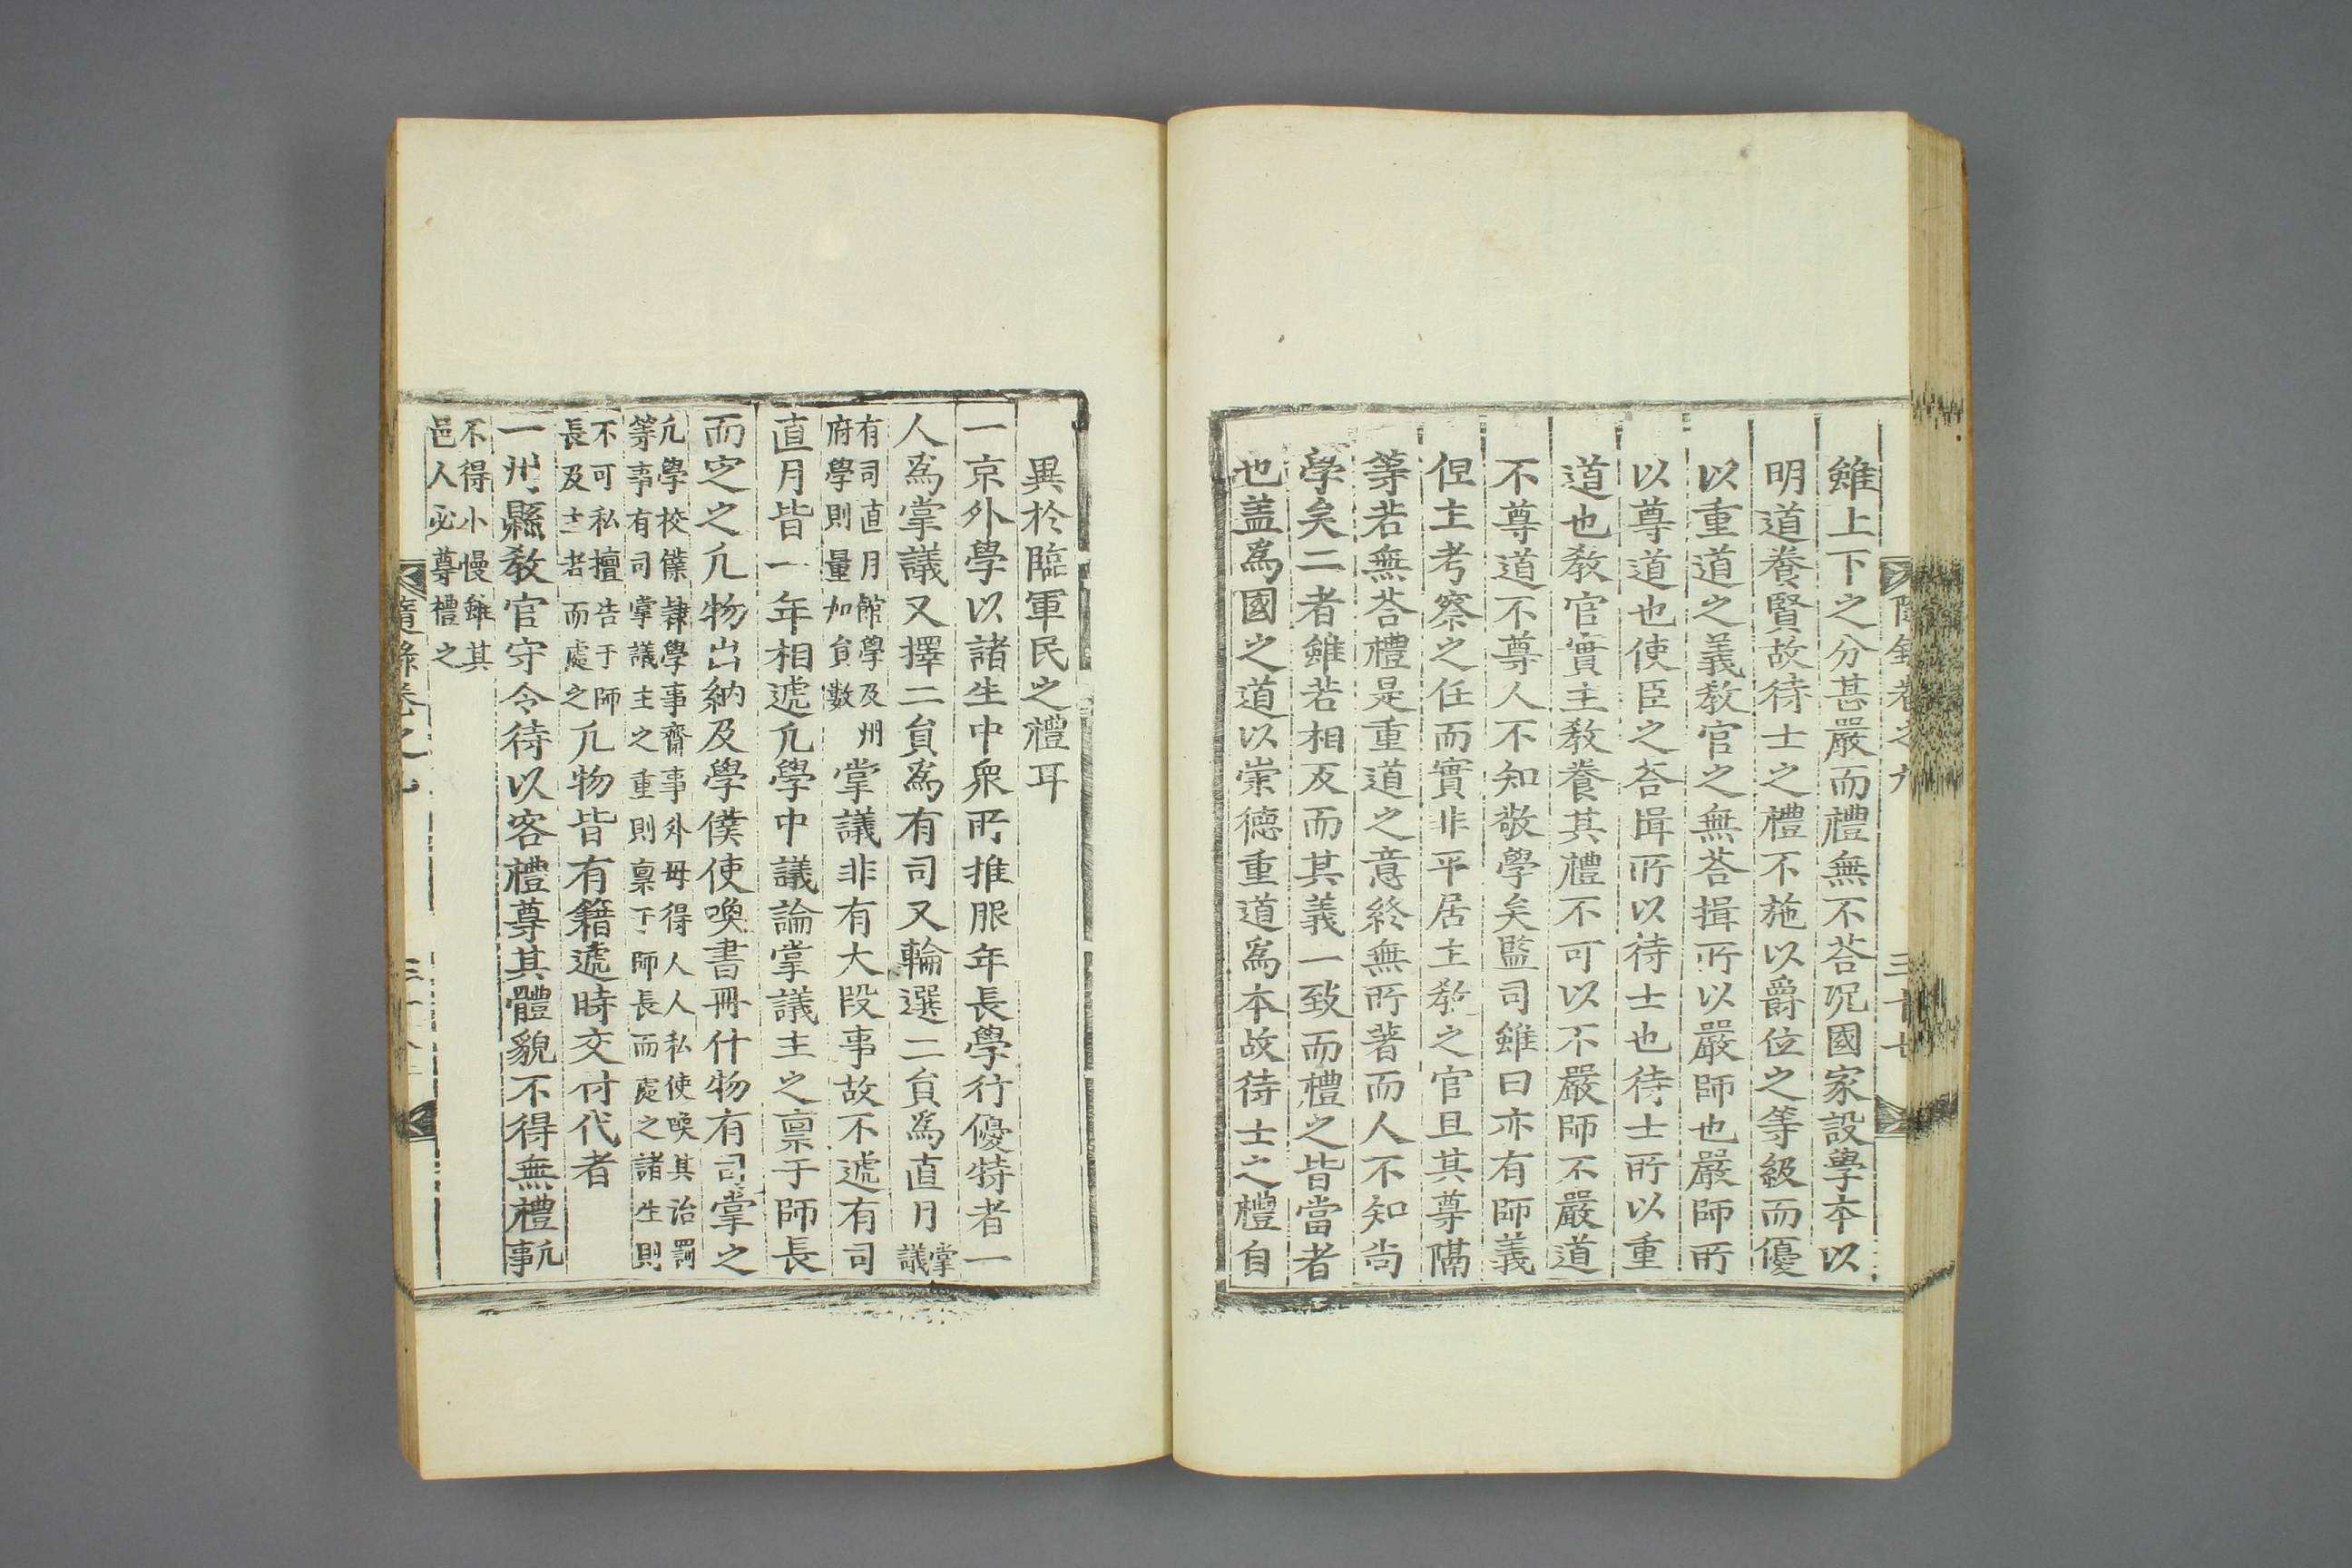 隨錄卷之九 三十七
雖上下之分甚嚴而禮無不荅况國家設學本以
明道養賢故待士之禮不施以爵位之等級而優
以重道之義敎官之無荅揖所以嚴師也嚴師所
以尊道也使臣之荅揖所以待士也待士所以重
道也敎官實主敎養其禮不可以不嚴師不嚴道
不尊道不尊人不知敬學矣監司雖曰亦有師義
但主考察之任而實非平居主敎之官且其尊隔
等若無荅禮是重道之意終無所著而人不知尚
學矣二者雖若相反而其義一致而禮之皆當者
也盖爲國之道以崇德重道爲本故待士之禮自
異於臨軍民之禮耳
一京外學以諸生中衆所推服年長學行優特者一
人爲掌議又擇二負爲有司又輪選二負爲直月掌議
有司直月館學及州府學則量加負數掌議非有大段事故不遞有司
直月皆一年相遞凢學中議論掌議主之禀于師長
而定之凢物出納及學僕使喚書冊什物有司掌之
凢學校僕隷學事齋事外毋得人人私使喚其治罰等事有司掌議主之重則禀于師長而處之諸生則
不可私擅告于師長及士者而處之凢物皆有籍遞時交付代者
一州縣敎官守令待以客禮尊其體貌不得無禮凢事
不得小慢雖其邑人必尊禮之
隨錄卷之九